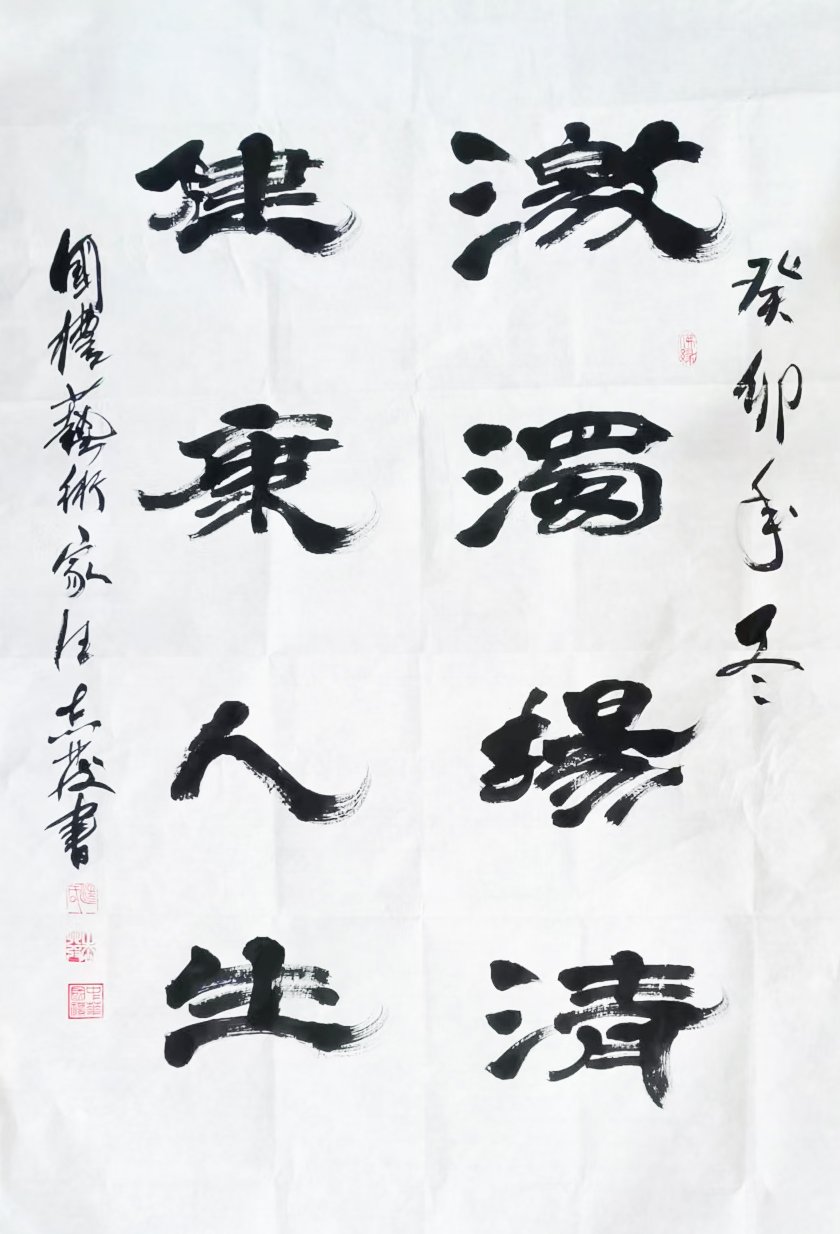 癸卯年冬
激濁揚清
健康人生
國禮藝術家汪志發書